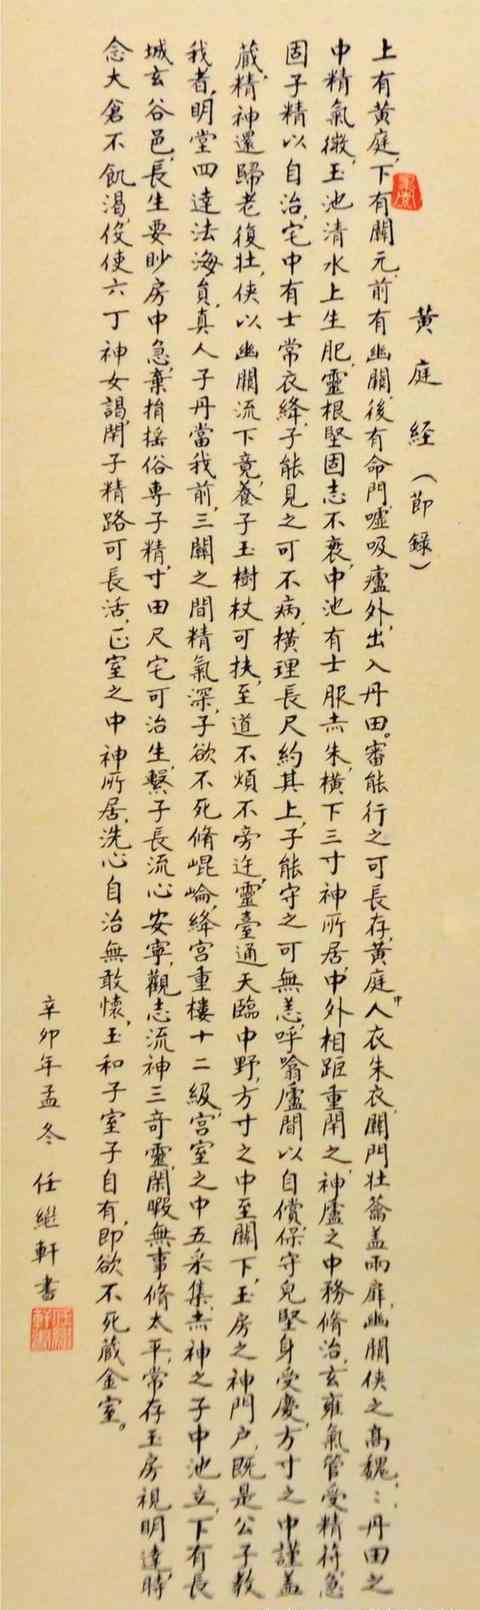 黃庭經（節錄）
上有黃庭,下有關元,前有幽關,後有命門,噓吸廬外,出入丹田。審能行之可長存,黃庭中人衣朱衣,關門壯籥蓋兩扉,幽關俠之高魏〻,丹田之
中精氣微,玉池清水上生肥,靈根堅固志不衰,中池有士服赤朱,橫下三寸神所居,中外相距重閉之,神廬之中務脩治,玄雍氣管受精符,急
固子精以自治,宅中有士常衣絳,子能見之可不病,橫理長尺約其上,子能守之可無恙,呼噏廬間以自償,保守兒堅身受慶,方寸之中謹蓋
藏,精神還歸老復壯,俠以幽關流下竟,養子玉樹杖可扶,至道不煩不旁迕,靈臺通天臨中野,方寸之中至關下,玉房之神門戶,既是公子教
我者,明堂四達法海員,真人子丹當我前,三關之間精氣深,子欲不死脩崐崘,絳宮重樓十二級,宮室之中五采集,赤神之子中池立,下有長
城玄谷邑,長生要眇房中急,棄捐搖俗專子精,寸田尺宅可治生,繫子長流心安寧,觀志流神三奇靈,閑暇無事脩太平,常存玉房視明達,時
念大倉不飢渴,役使六丁神女謁,閉子精路可長活,正室之中神所居,洗心自治無敢懷,玉和子室子自有,即欲不死藏金室。
辛卯年孟冬 任繼軒書